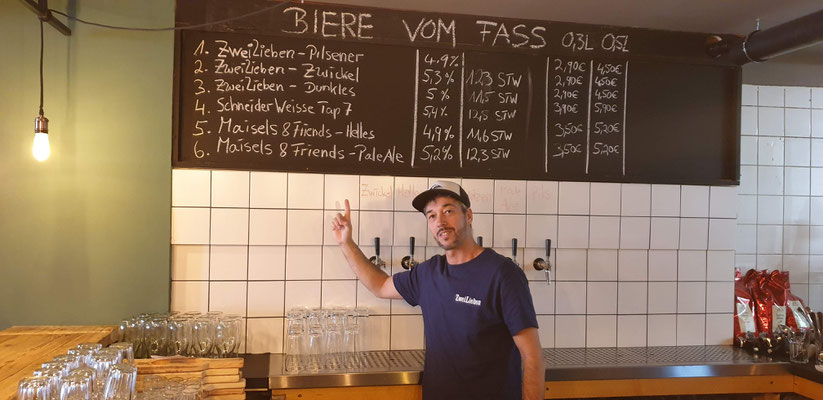 BIERE VOM FASS 0,3L 0,5L
1. ZweiLieben-Pilsener 4.9% 2,90€ 4,50€
2. ZweiLieben - Zwickel 5,3% 12,3 STW 2,90€ 4,50€
3. ZweiLieben - Dunkles 5% 11,5 STW 2,90€ 4,50€
4. Schneider Weisse Tap 7 5,4% 12,5 STW 3,90€ 5,90€
5. Maisels & Friends - Helles 4,9% 11,6 STW 3,50€ 5,20€
6. Maisels & Friends - Pale Ale 5,2% 12,3 STW 3,50€ 5,20€
Zwickel Helles Pils
ZweiLieben